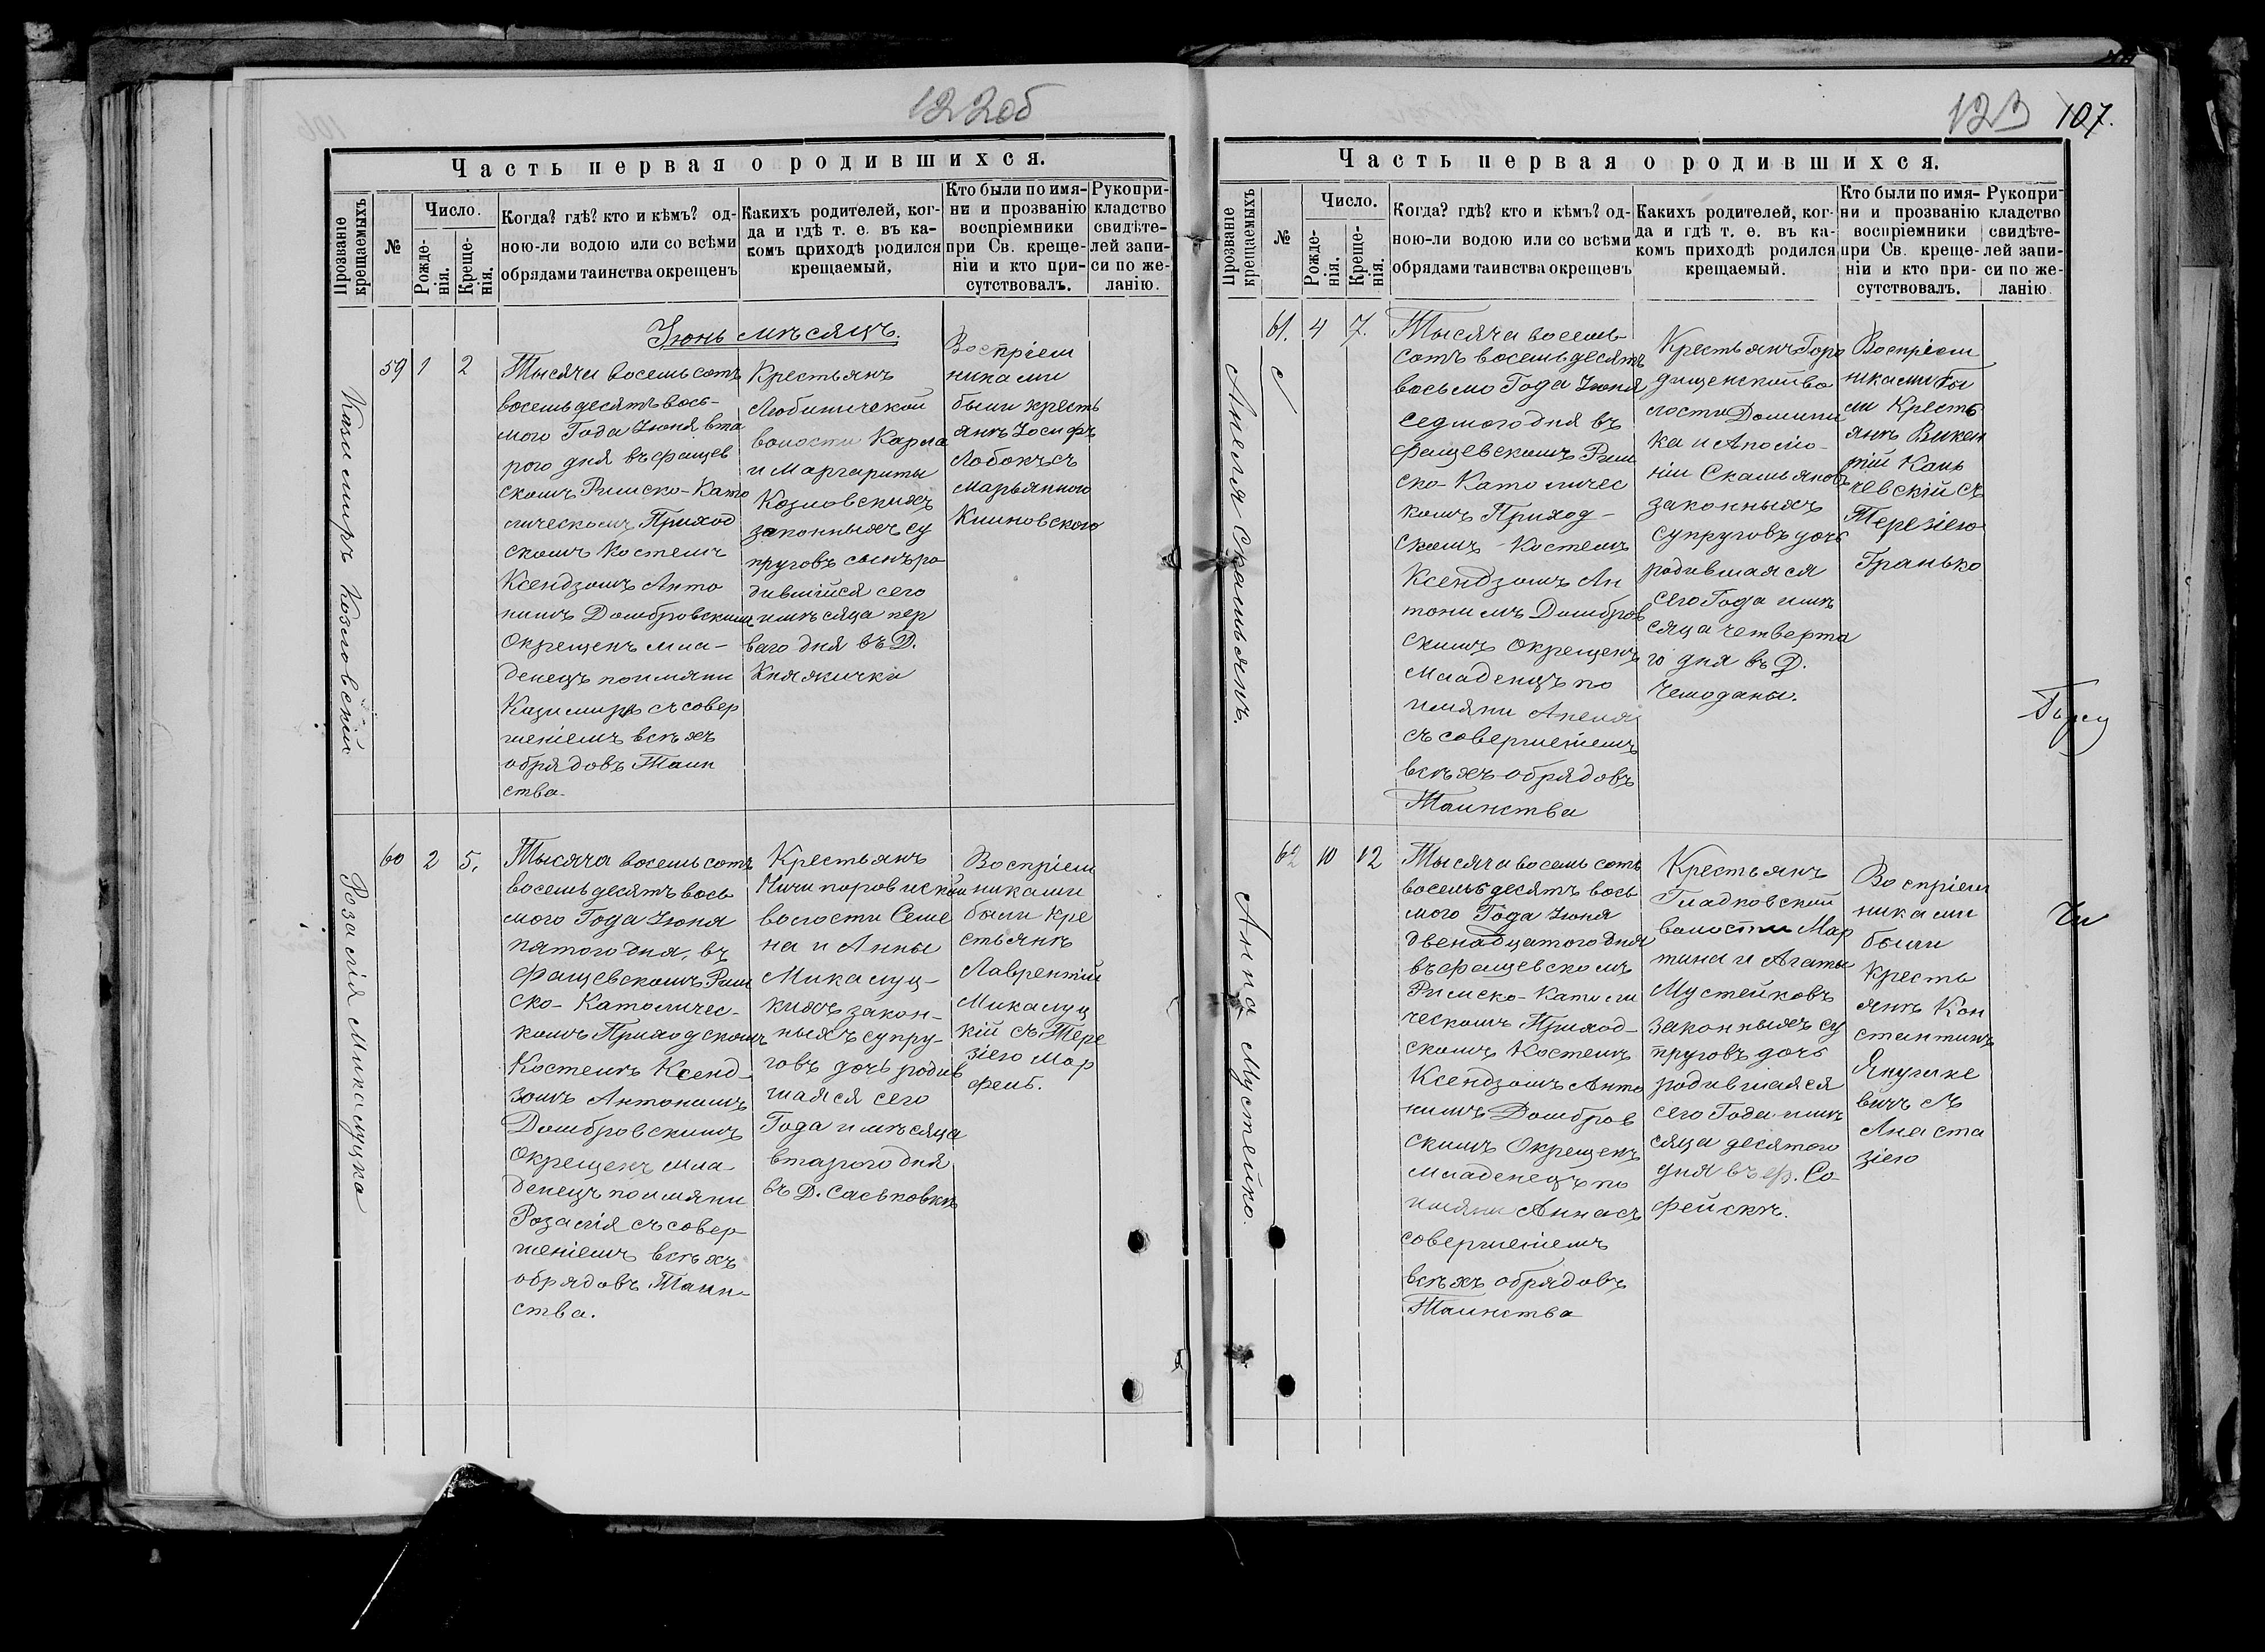 122об
Часть первая о родившихся.
Прозваніе крещаемыхъ
№
Число.
Рожде-
нія.
Креще-
нія.
Когда? гдѣ? кто и кѣмъ? од-
ною-ли водою или со всѣми
обрядами таинства окрещенъ
Какихъ родителей, ког-
да и гдѣ т. е. въ ка-
комъ приходѣ родился
крещаемый,
Кто были по имя-
ни и прозванію
воспріемники
при Св. креще-
ніи и кто при-
сутствовалъ.
Рукопри-
кладство
свидѣте-
лей запи-
си по же-
ланію.
Іюнь мѣсяцъ.
Казимиръ Козловскій
59 1 2
Тысяча восемьсотъ
восемьдесятъ вось-
мого Года Іюня вта
рого дня въ Фащев
скомъ Римско-Като
лическомъ Приход
скомъ Костелѣ
Ксендзомъ Анто
нимъ Домбровскимъ
Окрещенъ мла-
денецъ по имяни
Казимиръ съ совер
шеніемъ всѣхъ
обрядовъ Таин
ства.
Крестьянъ
Любиничской
волости Карла
и Маргариты
Козловскихъ
законныхъ су
пруговъ сынъ ро
дившійся сего
и мѣсяца пер
ваго дня въ Д.
Княжички
Воспріем
никами
были кресть
янъ Іосифъ
Лобокъ съ
Марьянною
Климовскою
Розалія Микалуцка
60 2 5.
Тысяча восемьсотъ
восемьдесятъ вось
мого Года Іюня
пятого дня, въ
Фащевскомъ Рим
ско-Католичес-
комъ Приходскомъ
Костелѣ Ксенд-
зомъ Антонимъ
Домбровскимъ
Окрещенъ мла-
денецъ по имяни
Розалія съ совер-
шеніемъ всѣхъ
обрядовъ Таин-
ства.
Крестьянъ
волости Семе
на и Анны
Микалуц-
кихъ закон-
ныхъ супру-
говъ дочь родив
шаяся сего
Года и мѣсяца
втарого дня
въ Д. Саськовкѣ
Воспріем
никами
были кре
стьянъ
Лаврентій
Микалуц
кій съ Тере
зіею Мар
фель.
123 107.
Часть первая о родившихся.
Прозваніе крещаемыхъ
№
Число.
Рожде-
нія.
Креще-
нія.
Когда? гдѣ? кто и кѣмъ? од-
ною-ли водою или со всѣми
обрядами таинства окрещенъ
Какихъ родителей, ког-
да и гдѣ т. е. въ ка-
комъ приходѣ родился
крещаемый.
Кто были по имя-
ни и прозванію
воспріемники
при Св. креще-
ніи и кто при-
сутствовалъ.
Рукопри-
кладство
свидѣте-
лей запи-
си по же-
ланію.
Анеля Скамьянъ.
61. 4 7.
Тысяча восемь
сотъ восемьдесятъ
восьмо Года Іюня
седмого дня въ
Фащевскомъ Рим
ско-Католичес
комъ Приход-
скомъ Костелѣ
Ксендзомъ Ан
тонимъ Домбров
скимъ Окрещенъ
Младенцъ по
имяни Анеля
съ совершеніемъ
всѣхъ обрядовъ
Таинства
Крестьянъ Горо
дищенской во
лости Домини
ка и Аполло-
ніи Скамьяновъ
законныхъ
супруговъ дочь
родившаяся
сего Года и мѣ
сяца четверта
го дня въ Д.
Чемоданы.
Воспріем
никами бы
ли Кресть
янъ Викен
тій Кань
чевскій съ
Терезіею
Гранько
Анна Мустейко.
62 10 12
Тысяча восемьсотъ
восемьдесятъ вось
мого Года Іюня
двенадцатого дня
въ Фащевскомъ
Римско-Католи
ческомъ Приход-
скомъ Костелѣ
Ксендзомъ Анто
нимъ Домбров
скимъ Окрещенъ
младенецъ по
имяни Анна съ
совершеніемъ
всѣхъ обрядовъ
Таинства
Крестьянъ
Гладковской
волости Мар
тина и Агаты
Мустейковъ
законныхъ су
пруговъ дочь
родившаяся
сего Года и мѣ
сяца десятого
дня въ ф. Со-
фейскѣ.
Воспріем
никами
были
кресть
янъ Кон
стантинъ
Янушке
вичъ съ
Анаста
зіею